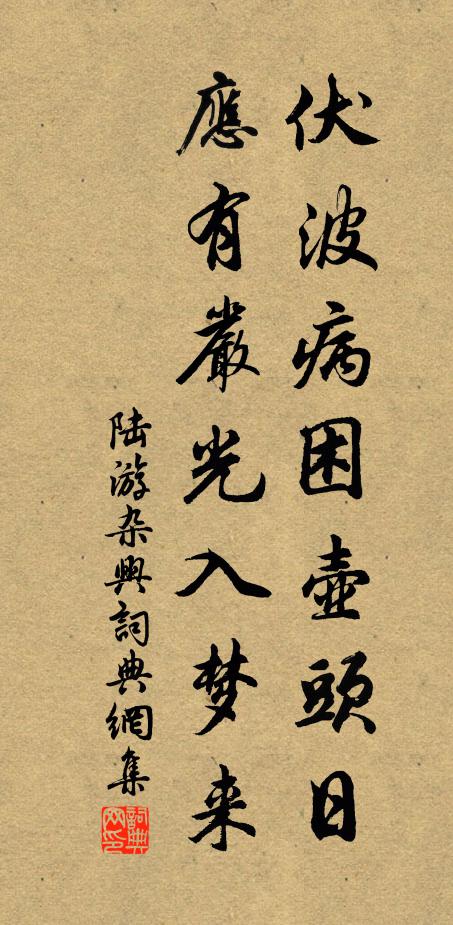 伏波病困壺頭日
應有嚴光入梦来
陆游杂興詞典網集
詞典网印